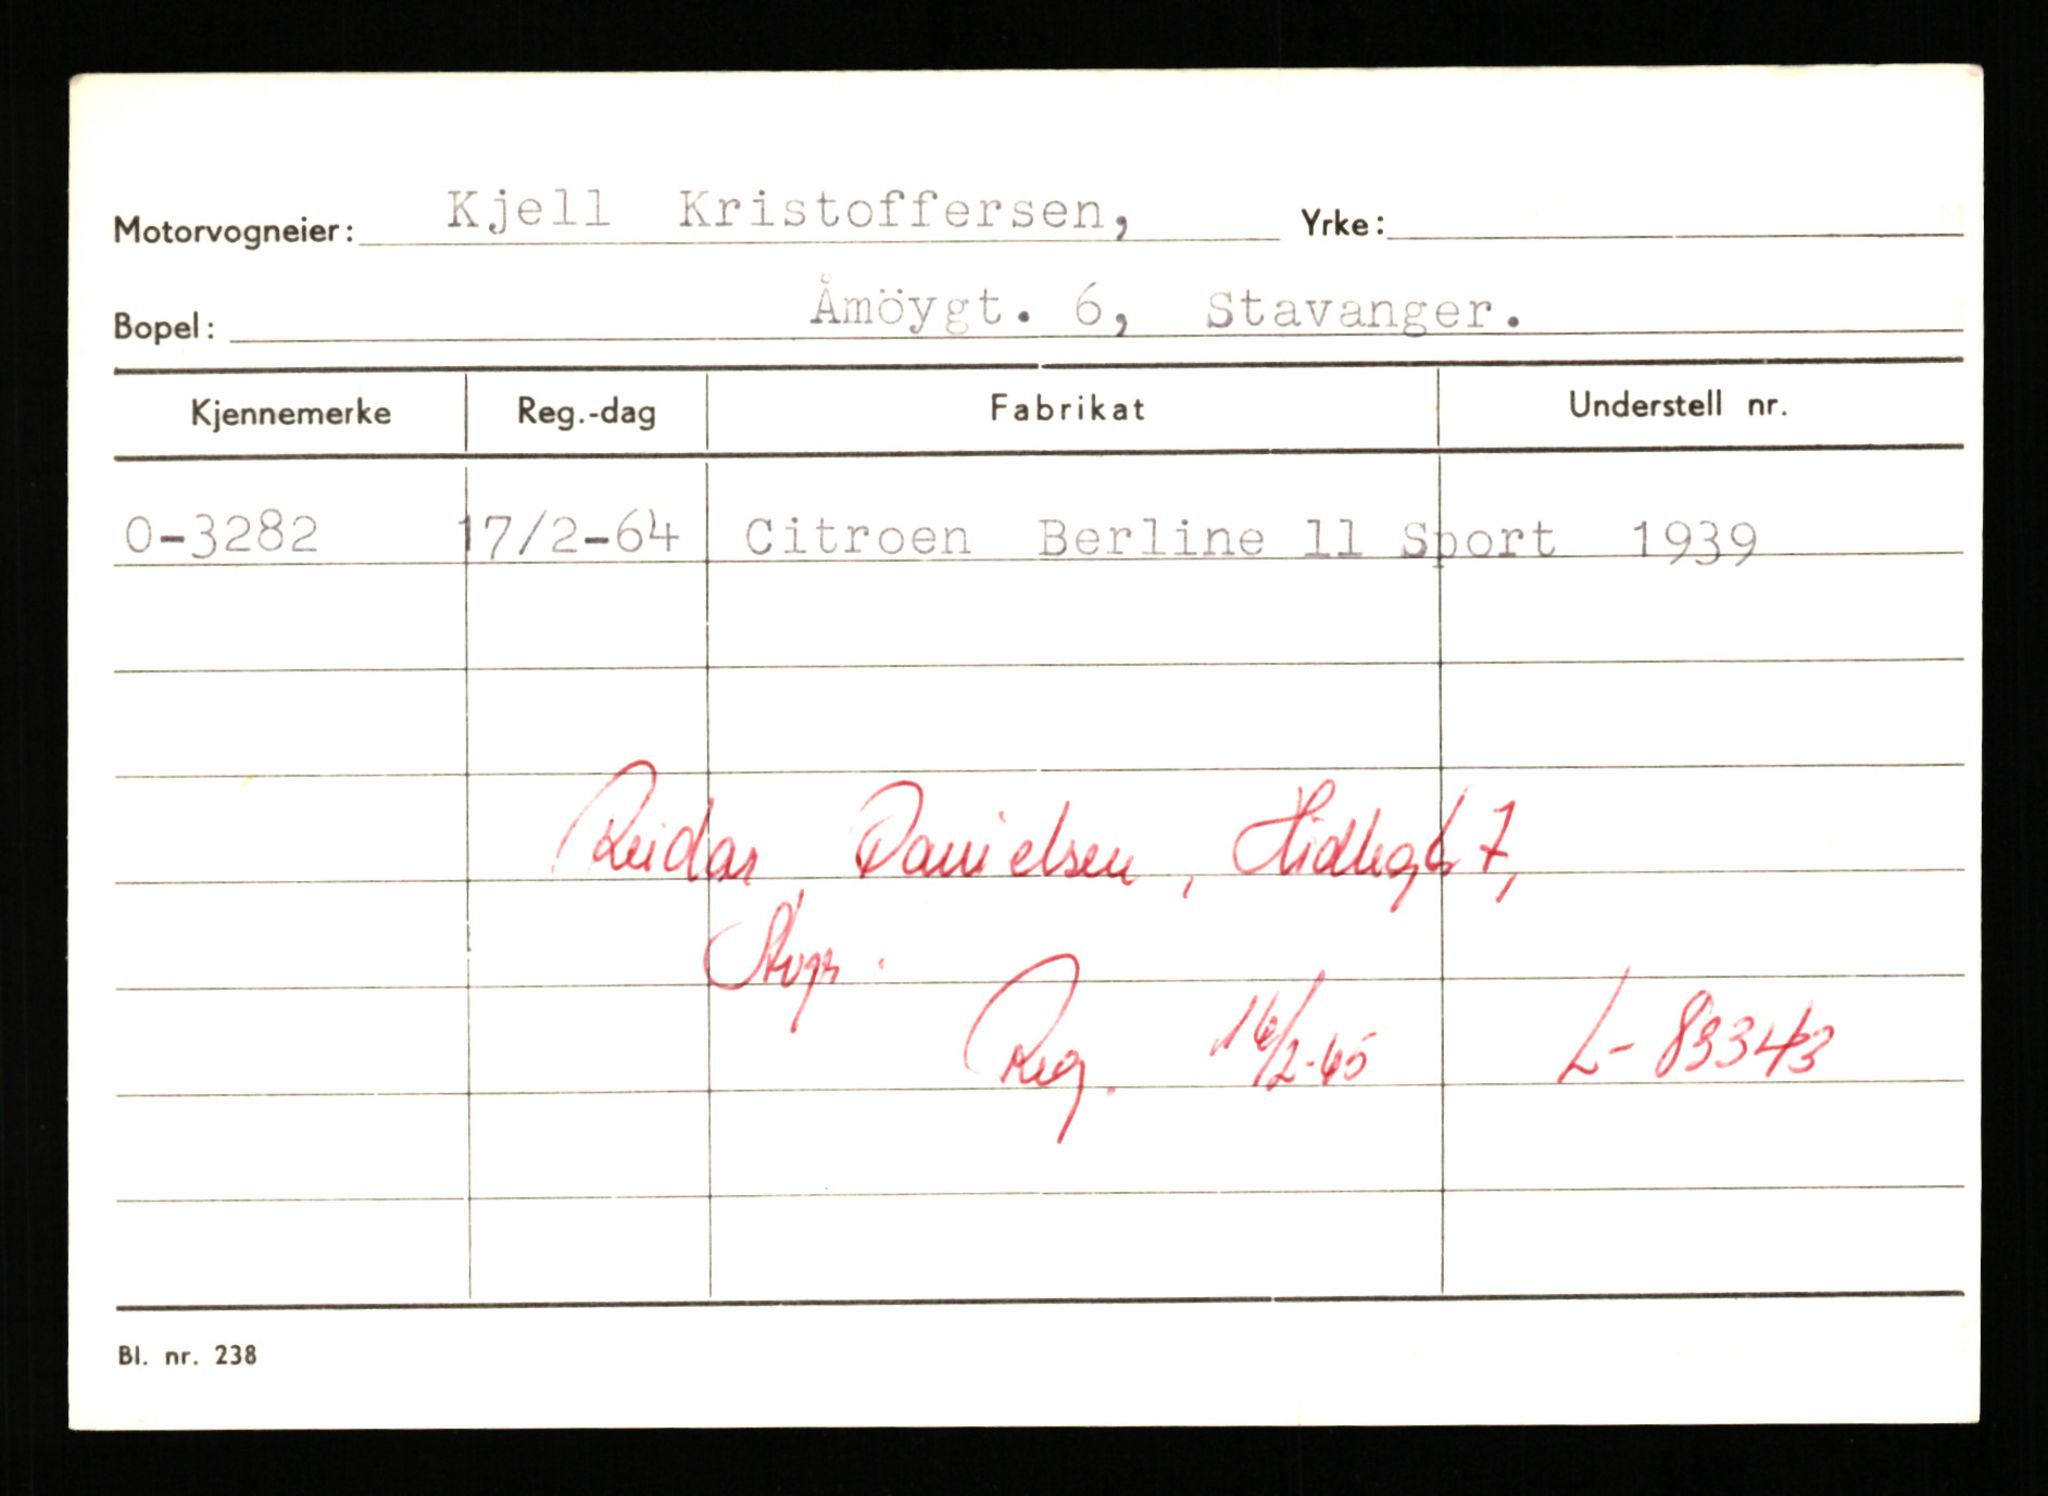 Motorvogneier: Kjell Kristoffersen, Yrke:
Bopel: Åmöygt. 6, Stavanger.
Kjennemerke Reg.-dag Fabrikat Understell nr.
O-3282 17/2-64 Citroen Berline 11 Sport 1939
Reidar Danielsen, Hidlegt 7,
Stvgr.
Reg. 16/2-65 L-83343
Bl. nr. 238